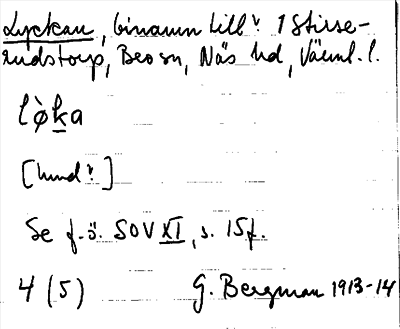 Lyckan, binamn till? 1 Stirse-
rudstorp, Bro sn, Näs hd, Värml. l.
lø̀ka
[hund?]
Se f.ö. SOV XI, s. 15f.
4 (5) G. Bergman 1913-14